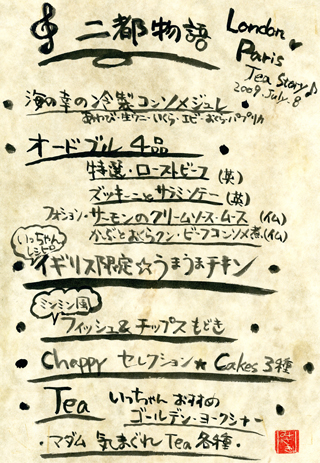 二都物語
London
Paris
Tea Story♪
2009. July. 8
海の幸の冷製コンソメジュレ
あわび・生ウニ・いくら・エビ・おくら・パプリカ
オードブル 4品
特選・ローストビーフ (英)
ズッキーニとサラミソテー (英)
フォション・サーモンのクリームソース・ムース (仏)
かぶとおくらクン・ビーフコンソメ煮 (仏)
いっちゃん
レシピ
イギリス限定☆うまうまチキン
ミンミン風
フィッシュ&チップスもどき
Chappy セレクション★ Cakes 3種
Tea いっちゃん おすすめ
ゴールデン・ヨークシャー
・マダム 気まぐれ Tea 各種・